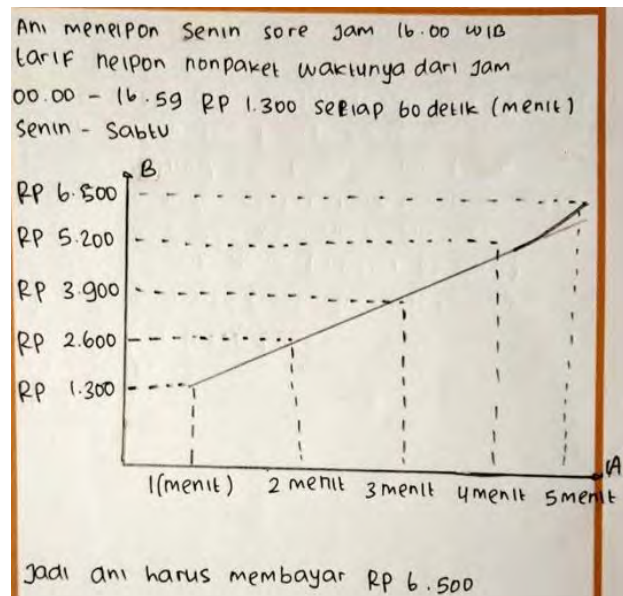 Ani menelpon Senin sore Jam 16.00 WIB
tarif nelpon nonpaket waktunya dari Jam
00.00 - 16.59 RP 1.300 setiap 60 detik (menit)
Senin - Sabtu
B
RP 6.500
RP 5.200
RP 3.900
RP 2.600
RP 1.300
A
1 (menit) 2 menit 3 menit 4 menit 5 menit
Jadi ani harus membayar RP 6.500